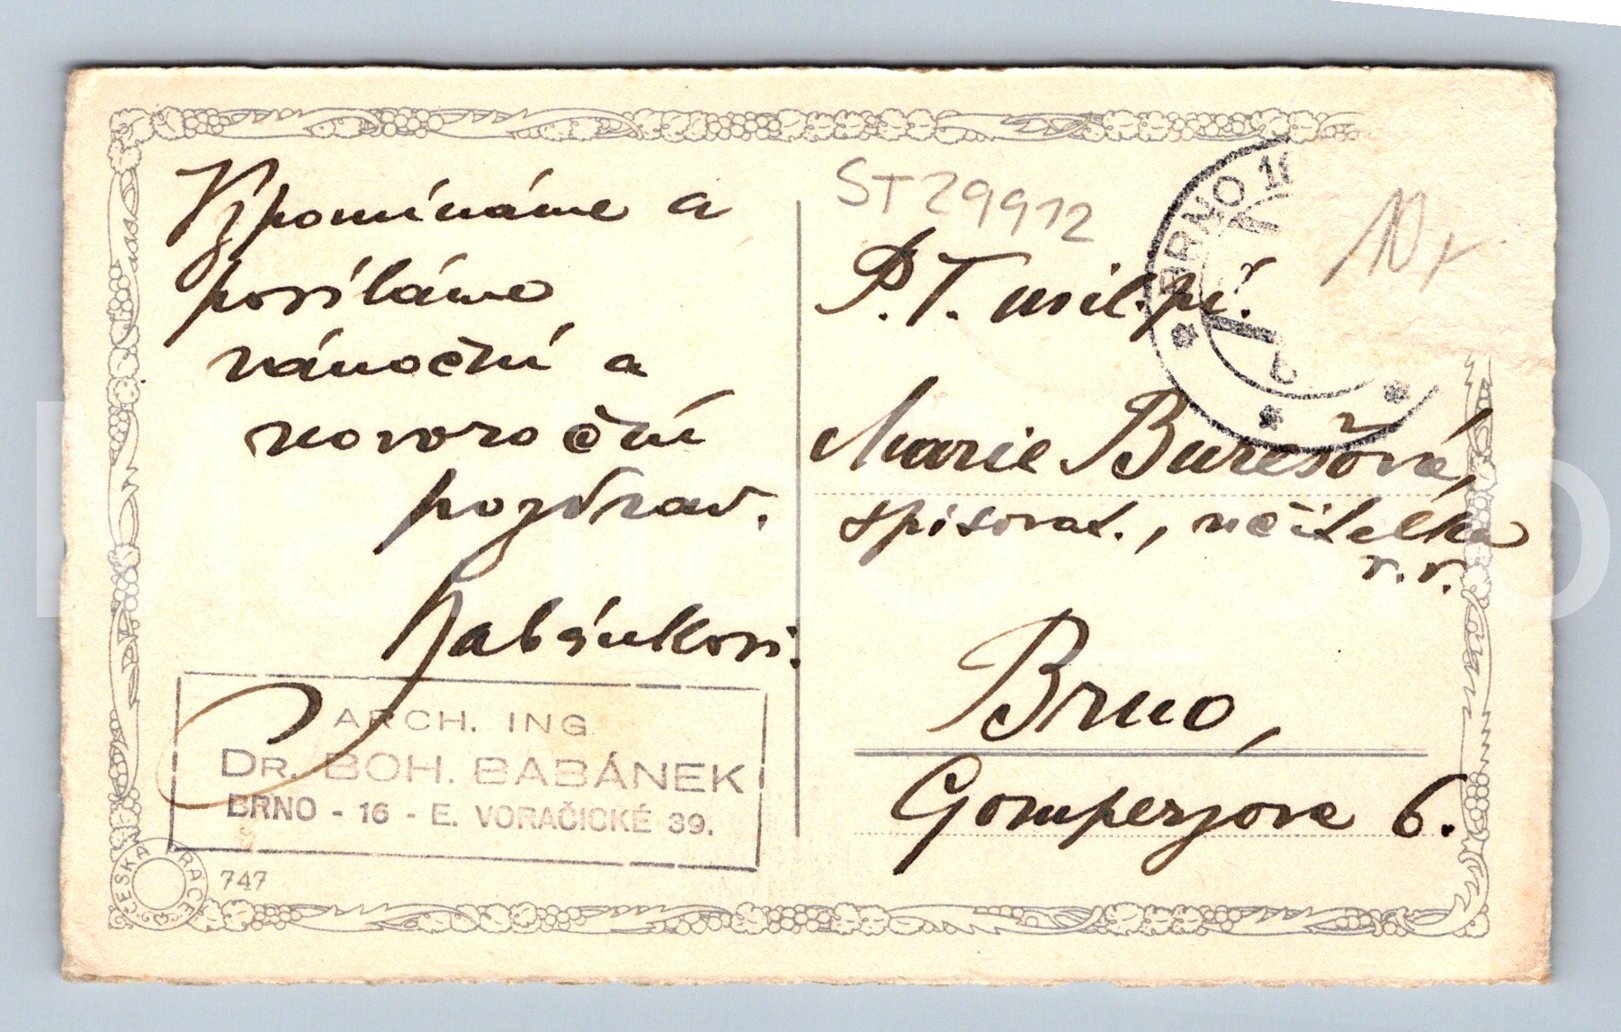 Vzpomínáme a
posíláme
vánoční a
novoroční
pozdrav.
Babánkovi.
ARCH. ING.
DR. BOH. BABÁNEK
BRNO - 16 - E. VORAČICKÉ 39.
ČESKÁ PRÁCE
747
ST 29912
BRNO 16
10,-
P.T. mil. pí.
Marie Burešová,
spisovat., učitelka
v. v.
Brno,
Gomperzova 6.